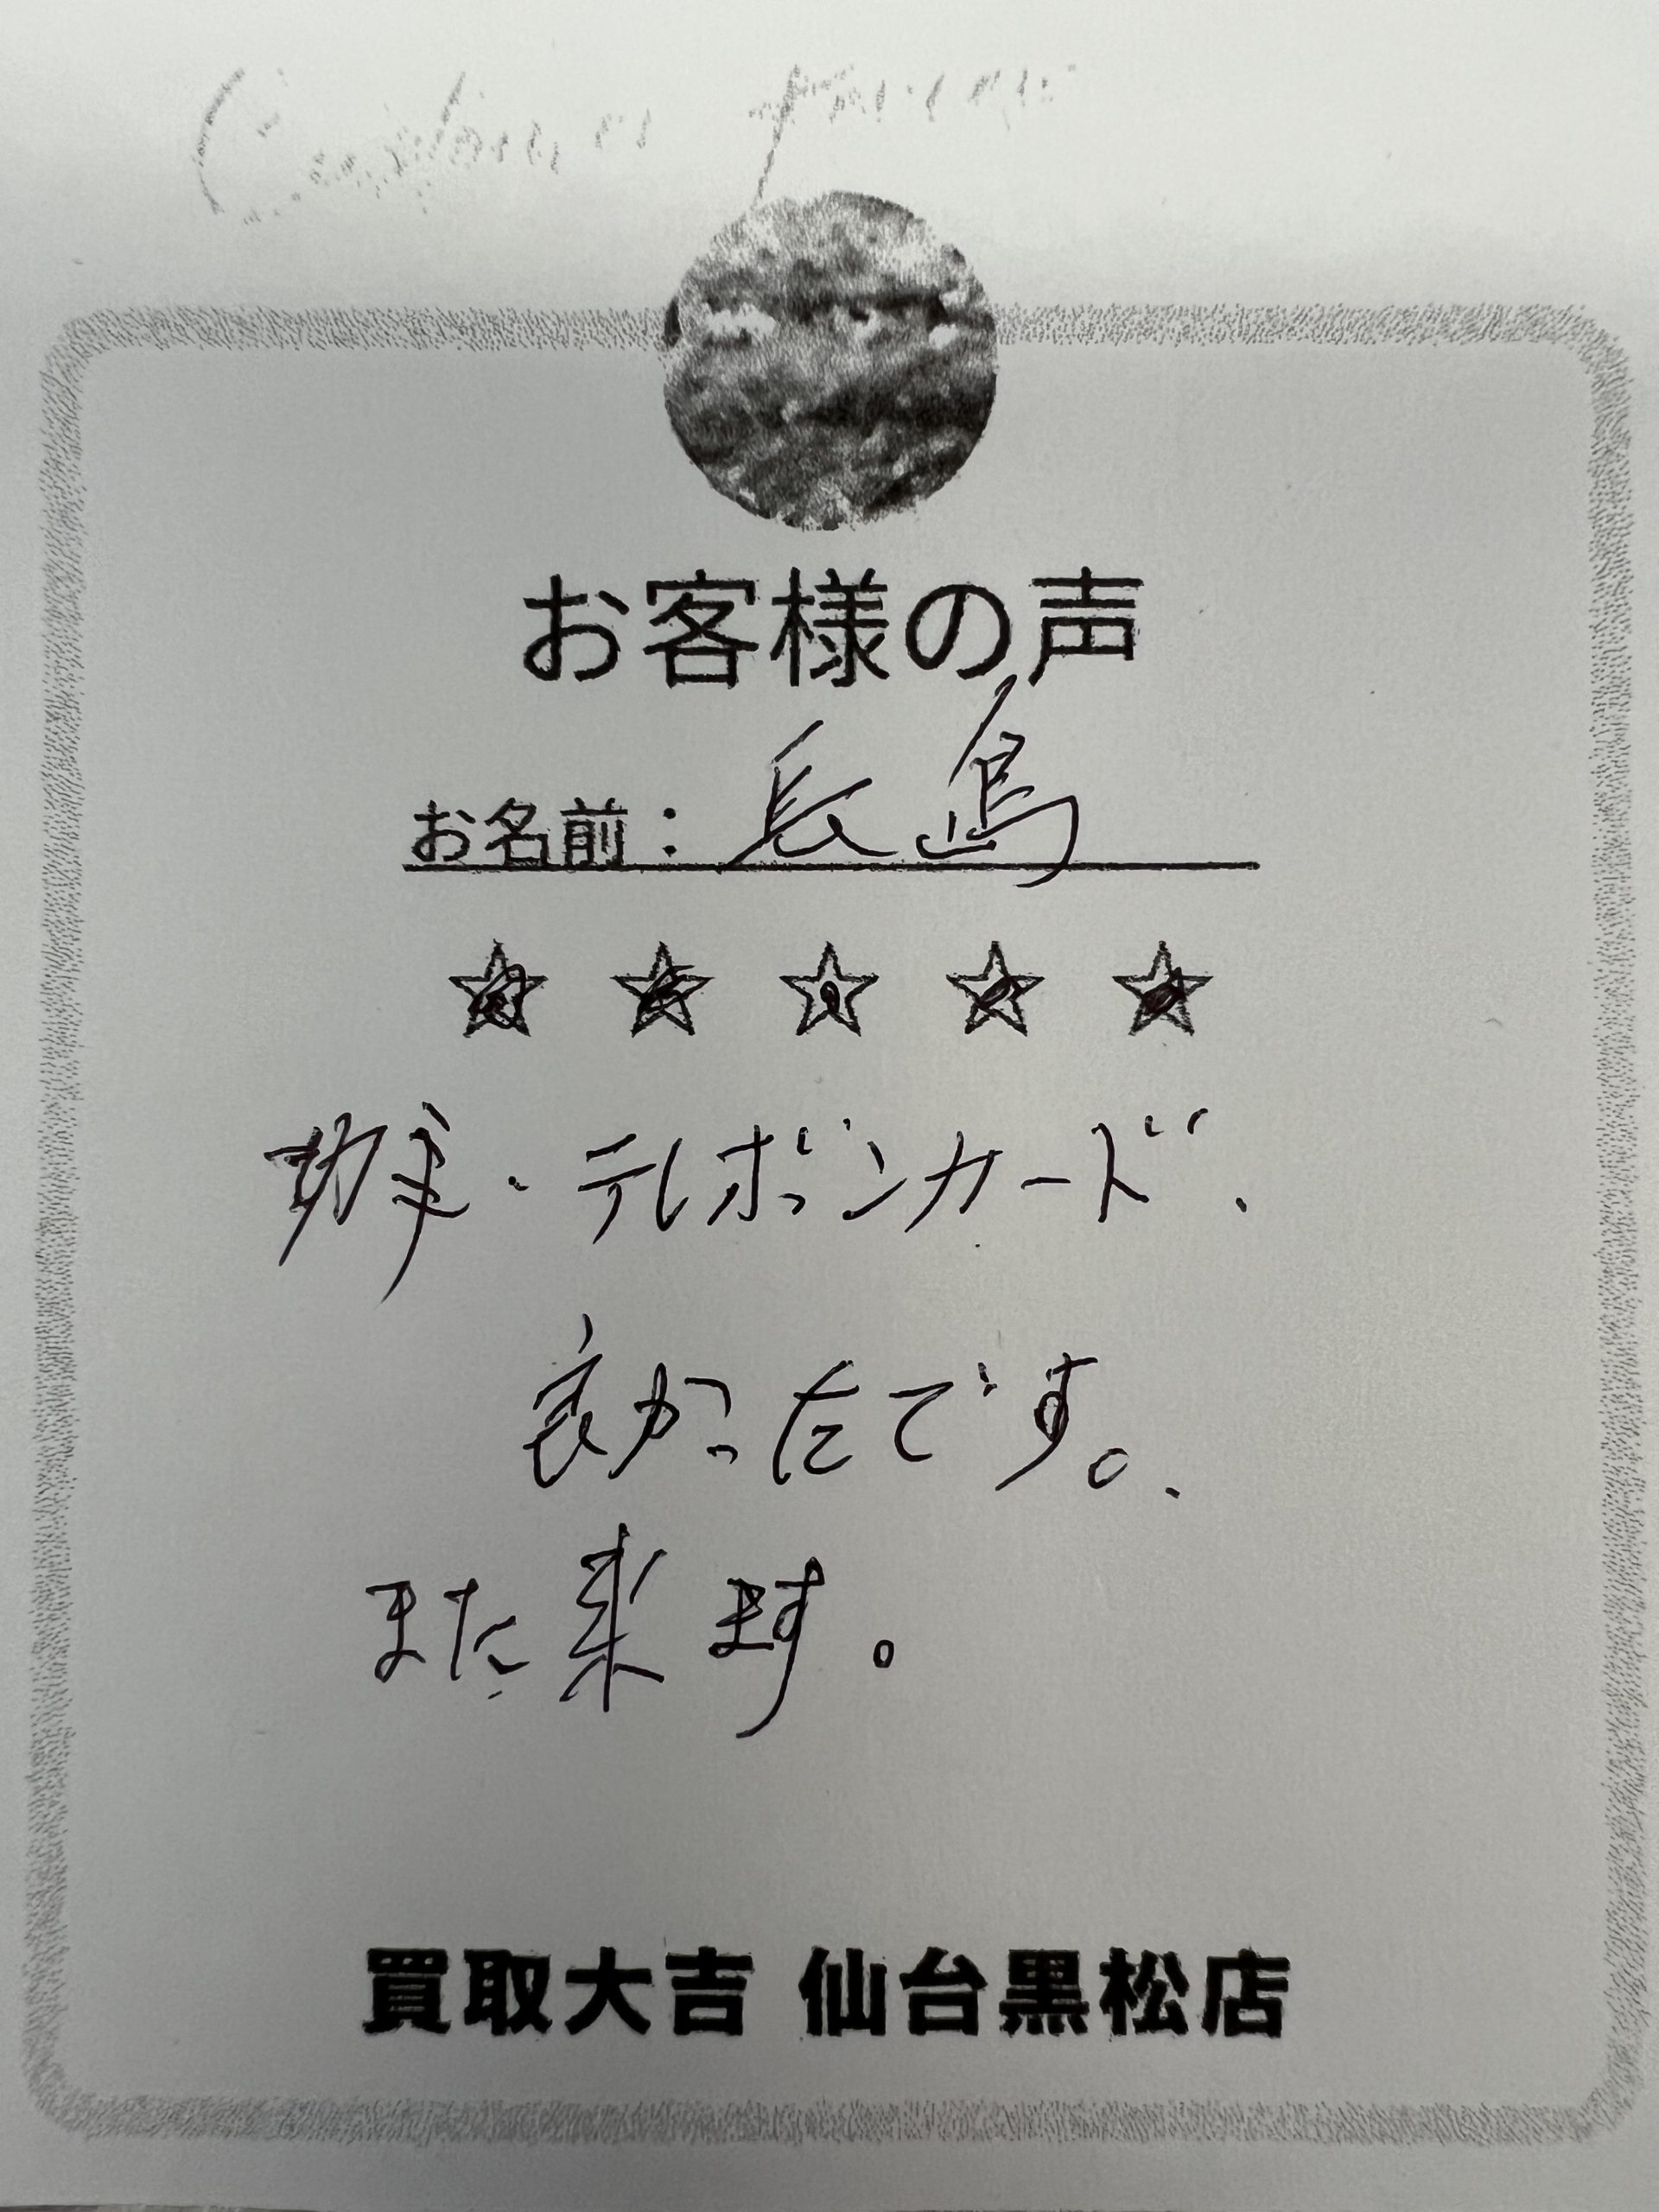 お客様の声
お名前： 長島
☆ ☆ ☆ ☆ ☆
切手・テレホンカード、
良かったです。
また来ます。
買取大吉 仙台黒松店